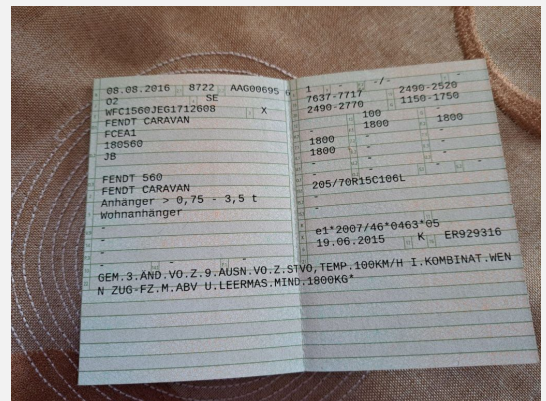 08.08.2016 8722 AAG00695 6
02 SE
WFC1560JEG1712608 X
FENDT CARAVAN
FCEA1
180560
JB
FENDT 560
FENDT CARAVAN
Anhänger > 0,75 - 3,5 t
Wohnanhänger
-
-
-
- - -
1 -/- -
7637-7717 2490-2520
2490-2770 1150-1750
- 100 -
- 1800 1800
1800 -
1800 -
- -
- - -
205/70R15C106L
-
-
e1*2007/46*0463*05
19.06.2015 K ER929316
GEM.3.ÄND.VO.Z.9.AUSN.VO.Z.STVO,TEMP.100KM/H I.KOMBINAT.WEN
N ZUG-FZ.M.ABV U.LEERMAS.MIND.1800KG*